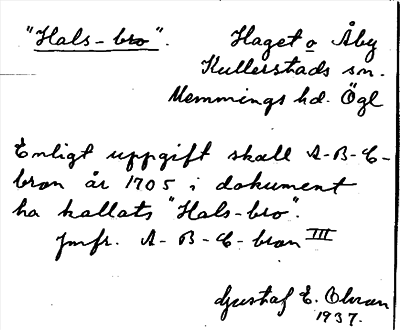 "Hals-bro". Haget o Åby
Kullerstads sn.
Memmings hd. Ögl
Enligt uppgift skall A-B-C-
bron år 1705 i dokument
ha kallats "Hals-bro".
Jmfr. A-B-C-bron III
Gustaf E.
1937.